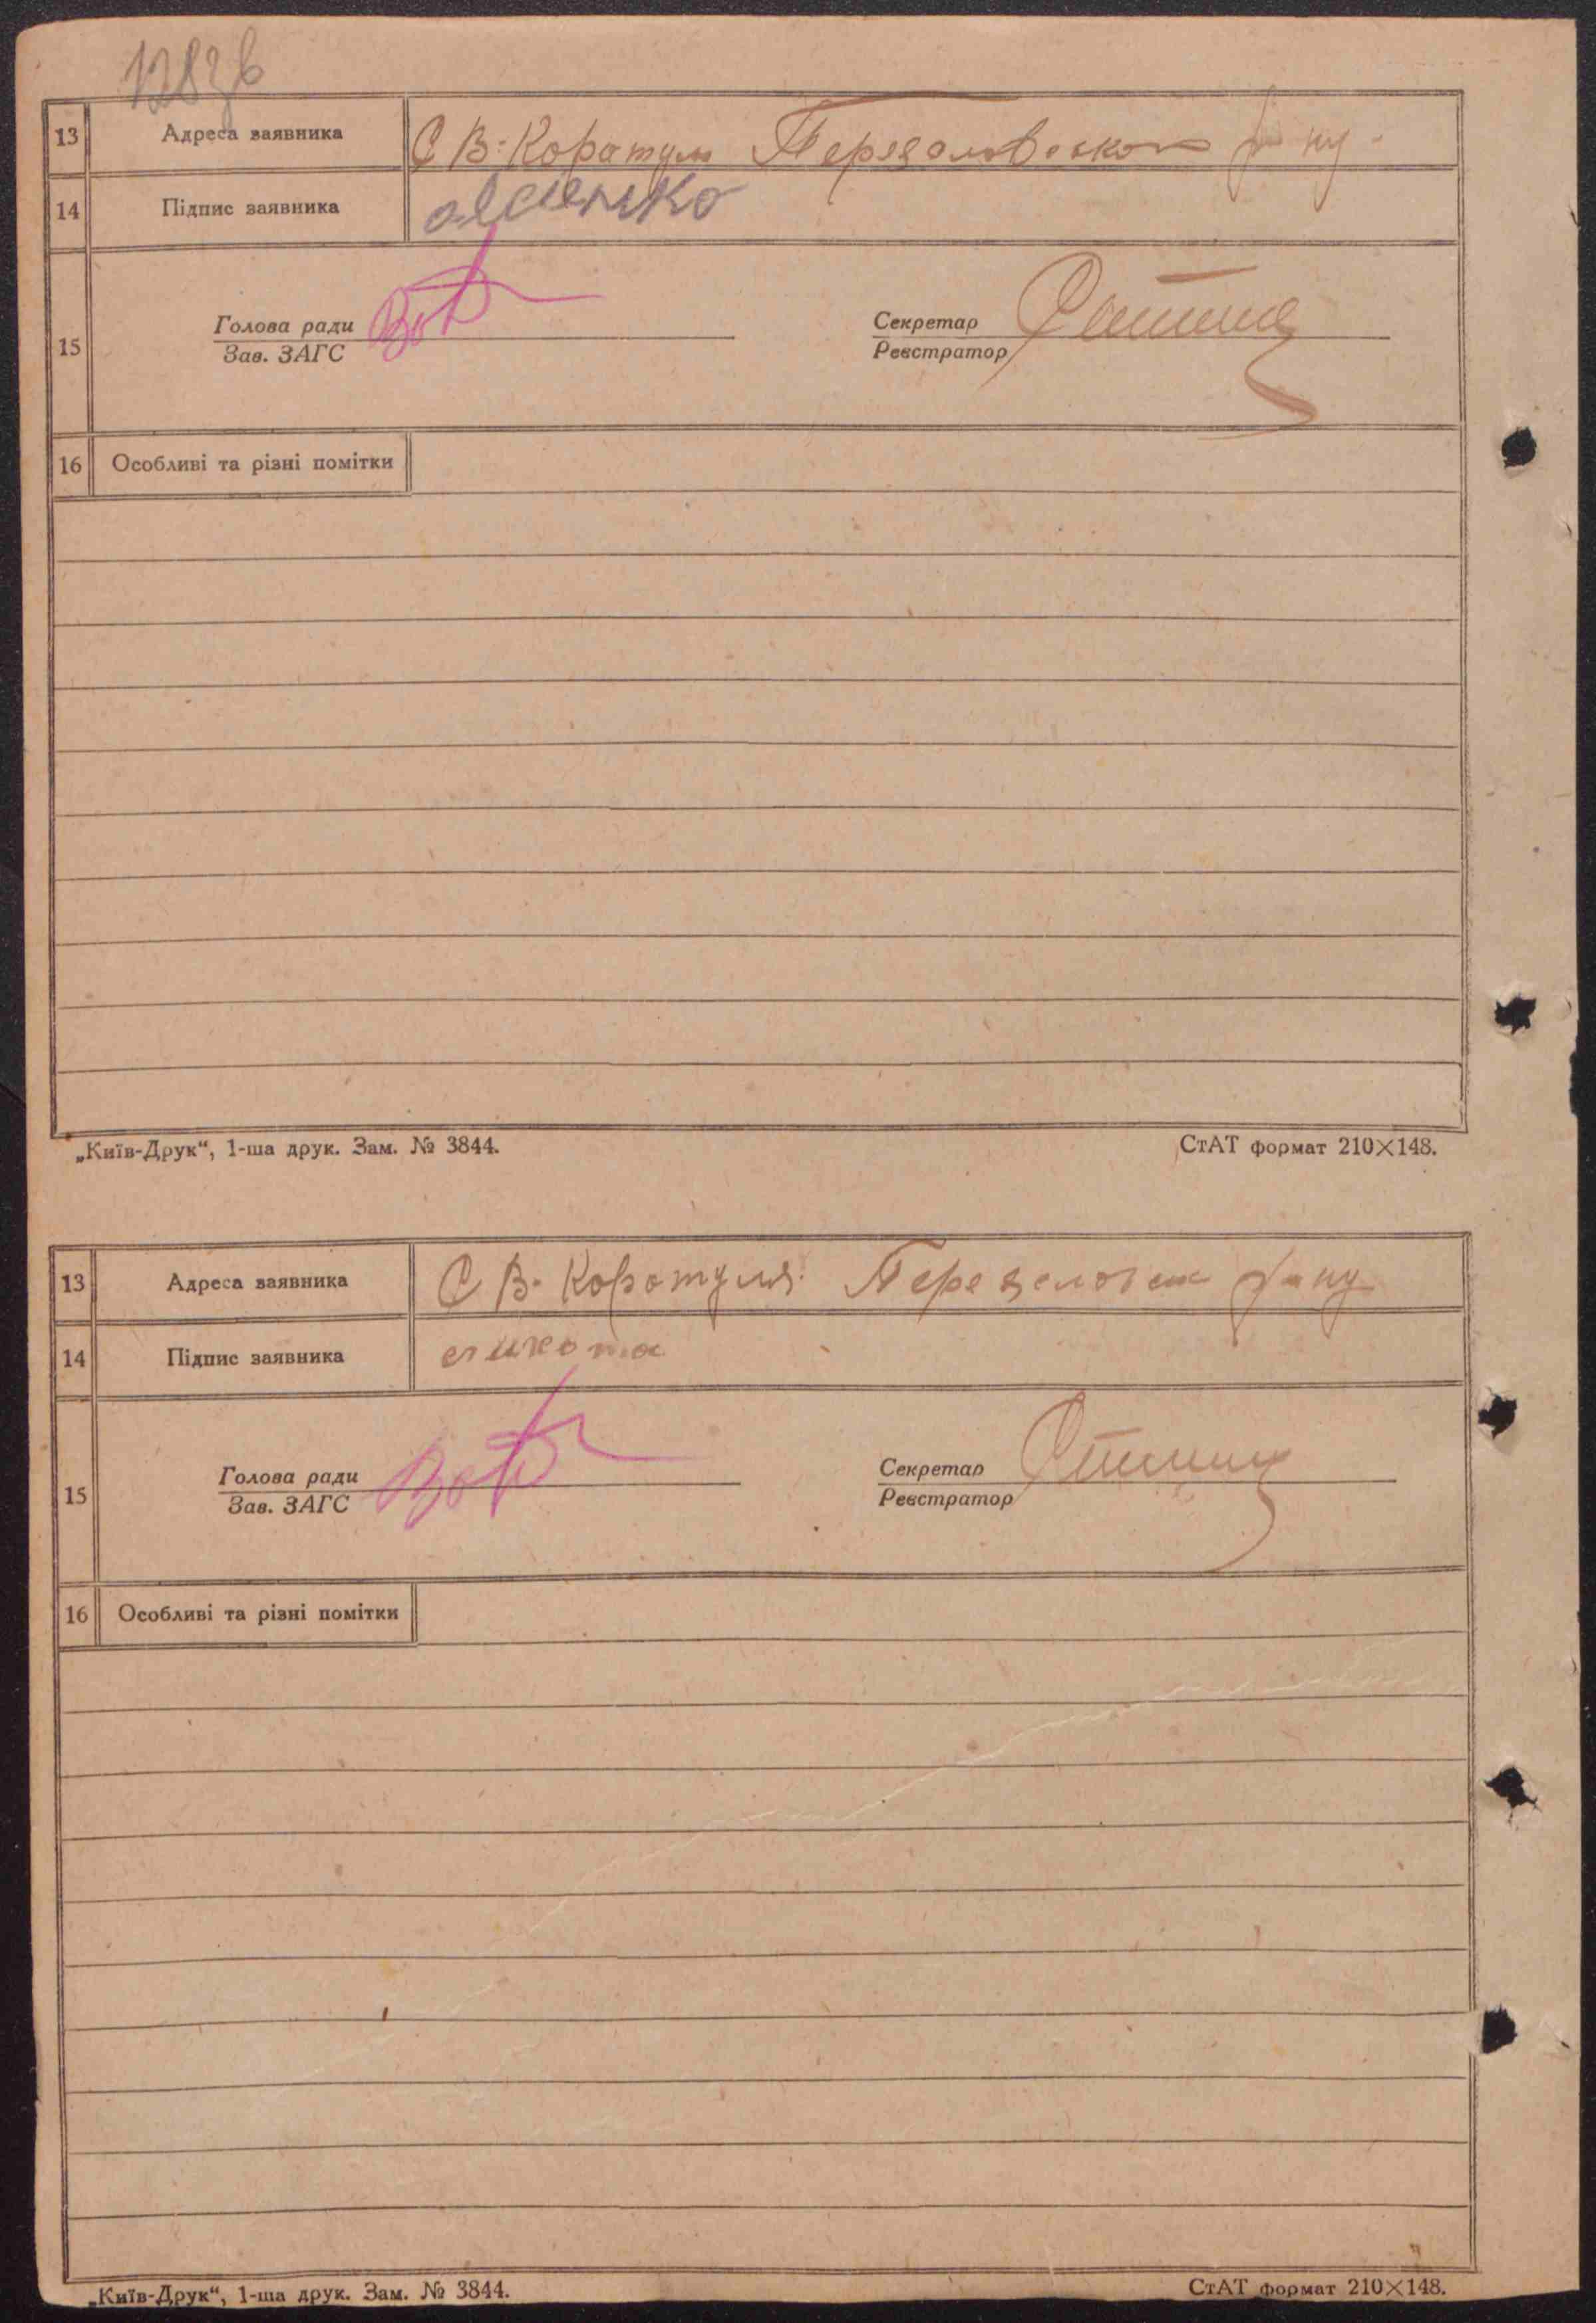 128зв
13 Адреса заявника С В-Коратуль Переяславського р-ну.
14 Підпис заявника
15 Голова ради
Зав. ЗАГС
Секретар
Реєстратор
16 Особливі та різні помітки
„Київ-Друк“, 1-ша друк. Зам. № 3844. СтАТ формат 210×148.
13 Адреса заявника С В-Коратуля р-ну
14 Підпис заявника
15 Голова ради
Зав. ЗАГС
Секретар
Реєстратор
16 Особливі та різні помітки
„Київ-Друк“, 1-ша друк. Зам. № 3844. СтАТ формат 210×148.